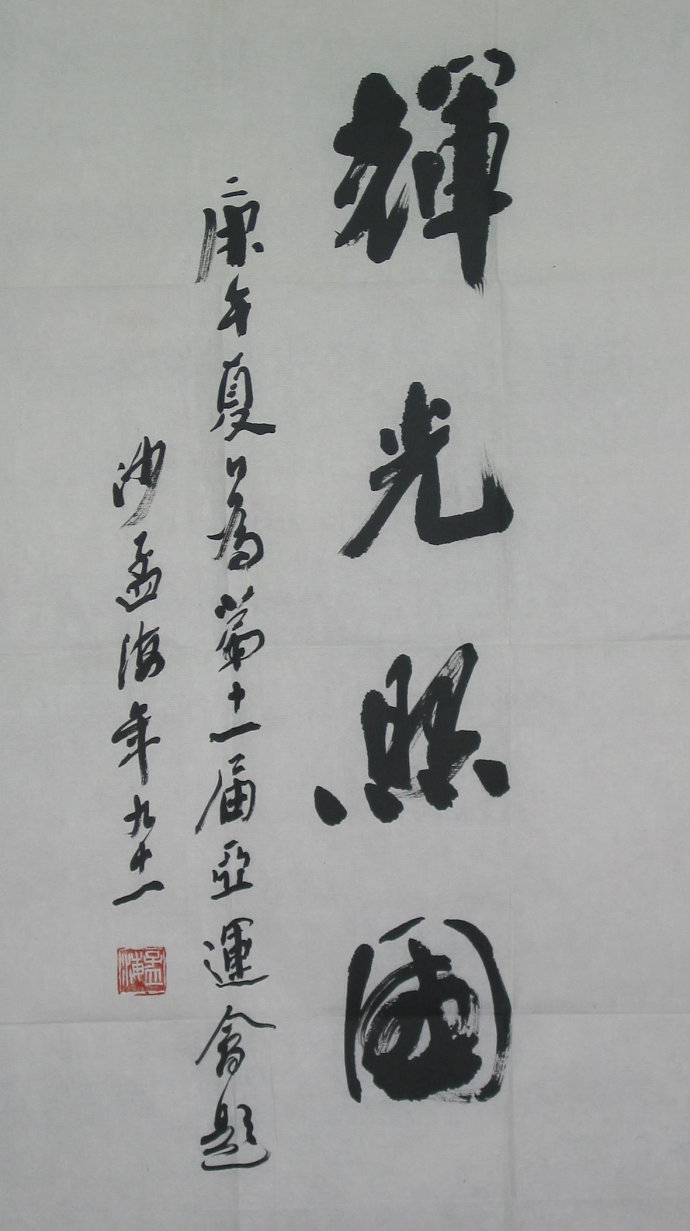 輝光照國
庚午夏為第十一屆亞運會題
沙孟海年九十一
孟海